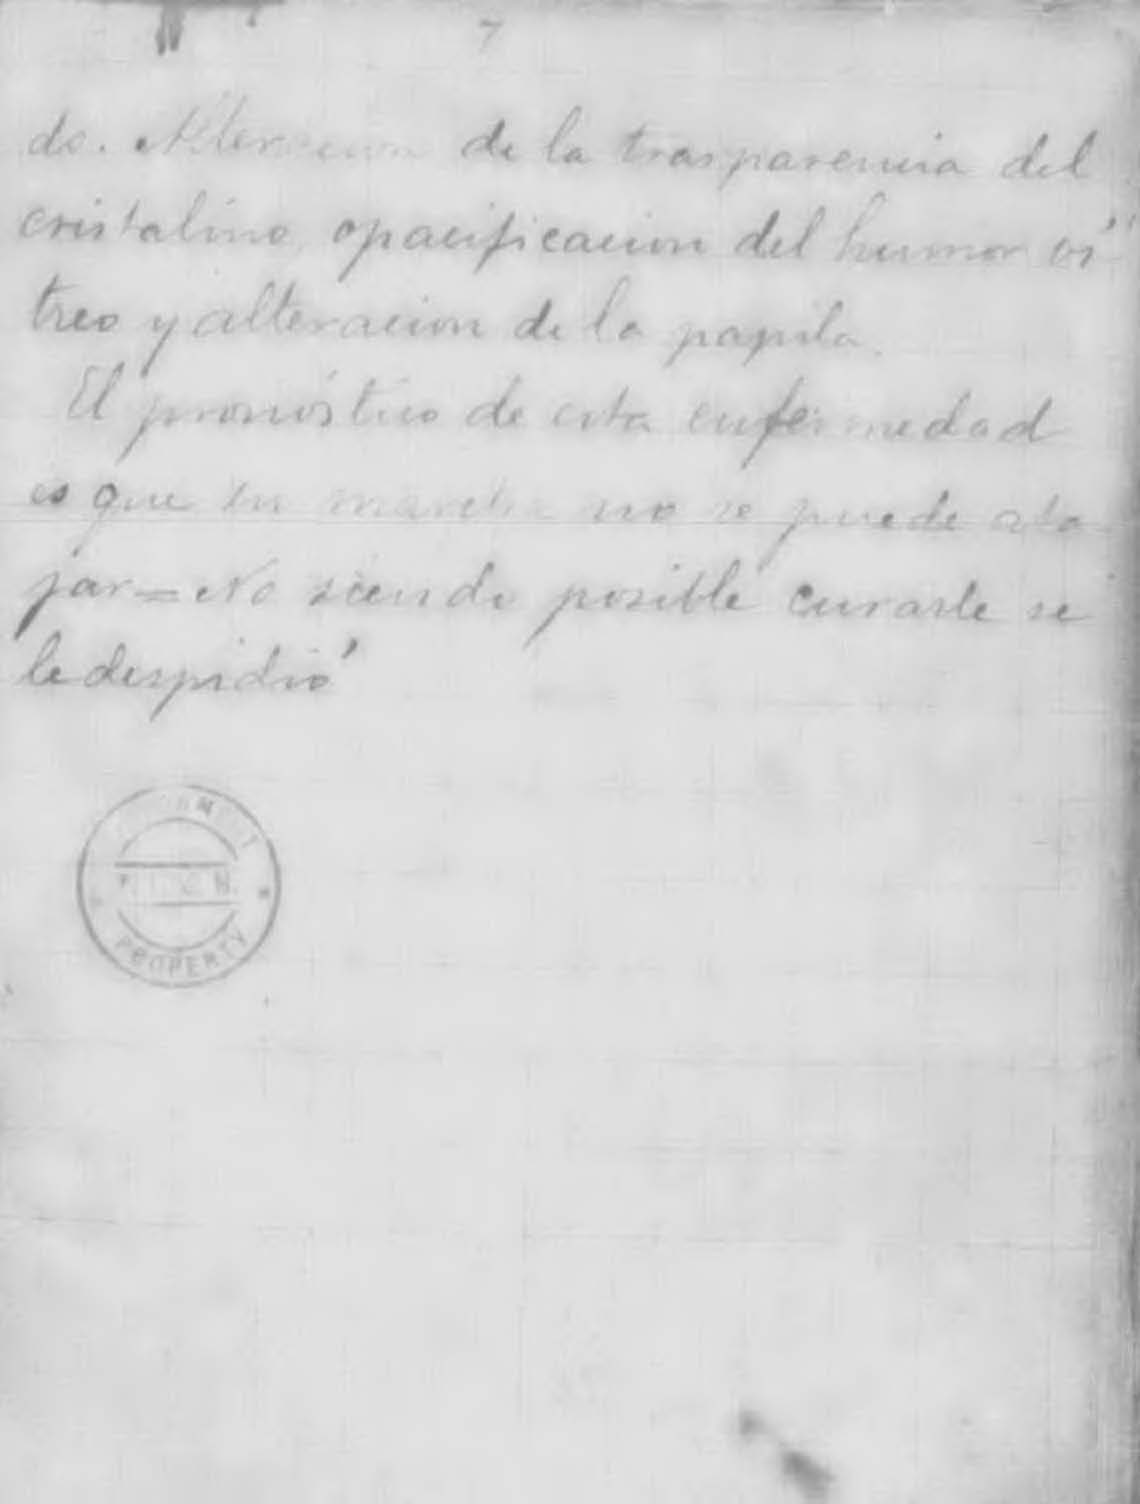 7
do. Alteracion de la trasparencia del
cristalino, opacificacion del humor ví
treo y alteracion de la papila.
El pronóstico de esta enfermedad
es que su marcha no se puede ata
jar = No siendo posible curarle se
le despidió
PROPERTY